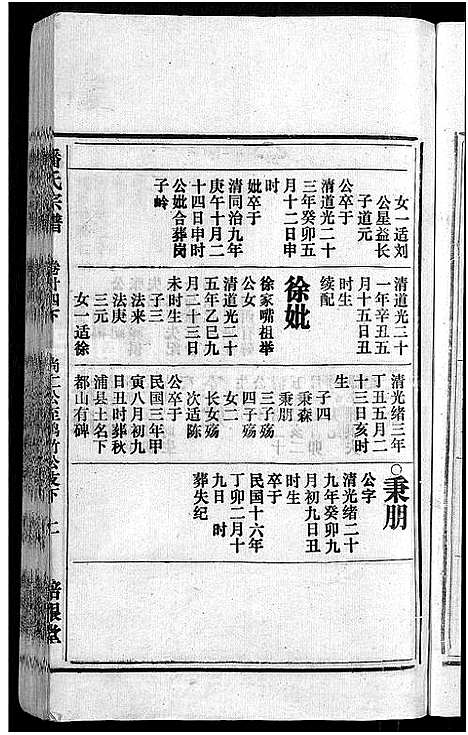 女一适刘
公星益長
子道元
公卒于
清道光二十
三年癸卯五
月十二日申
时
妣卒于
清同治九年
庚午十月二
十四日申时
公妣合葬岗
子岭
清道光二十
一年辛丑五
月十五日丑
时生
续配
徐妣
徐家嘴祖举
公女
清道光二十
五年乙巳九
月二十三日
未时生
子三
法来
法庚
三元
女一适徐
清光绪三年
丁丑五月二
十三日亥时
生
子四
秉森
秉朋
三子殇
四子殇
女二
长女殇
次适陈
公卒于
民国三年甲
寅八月初九
日丑时葬秋
浦县土名下
都山有碑
○秉朋
公字
清光绪二十
九年癸卯九
月初九日丑
时生
卒于
民国十六年
丁卯二月十
九日 时
葬失纪
潘氏宗谱
卷廿四下
尚仁公至
公支下
培根堂